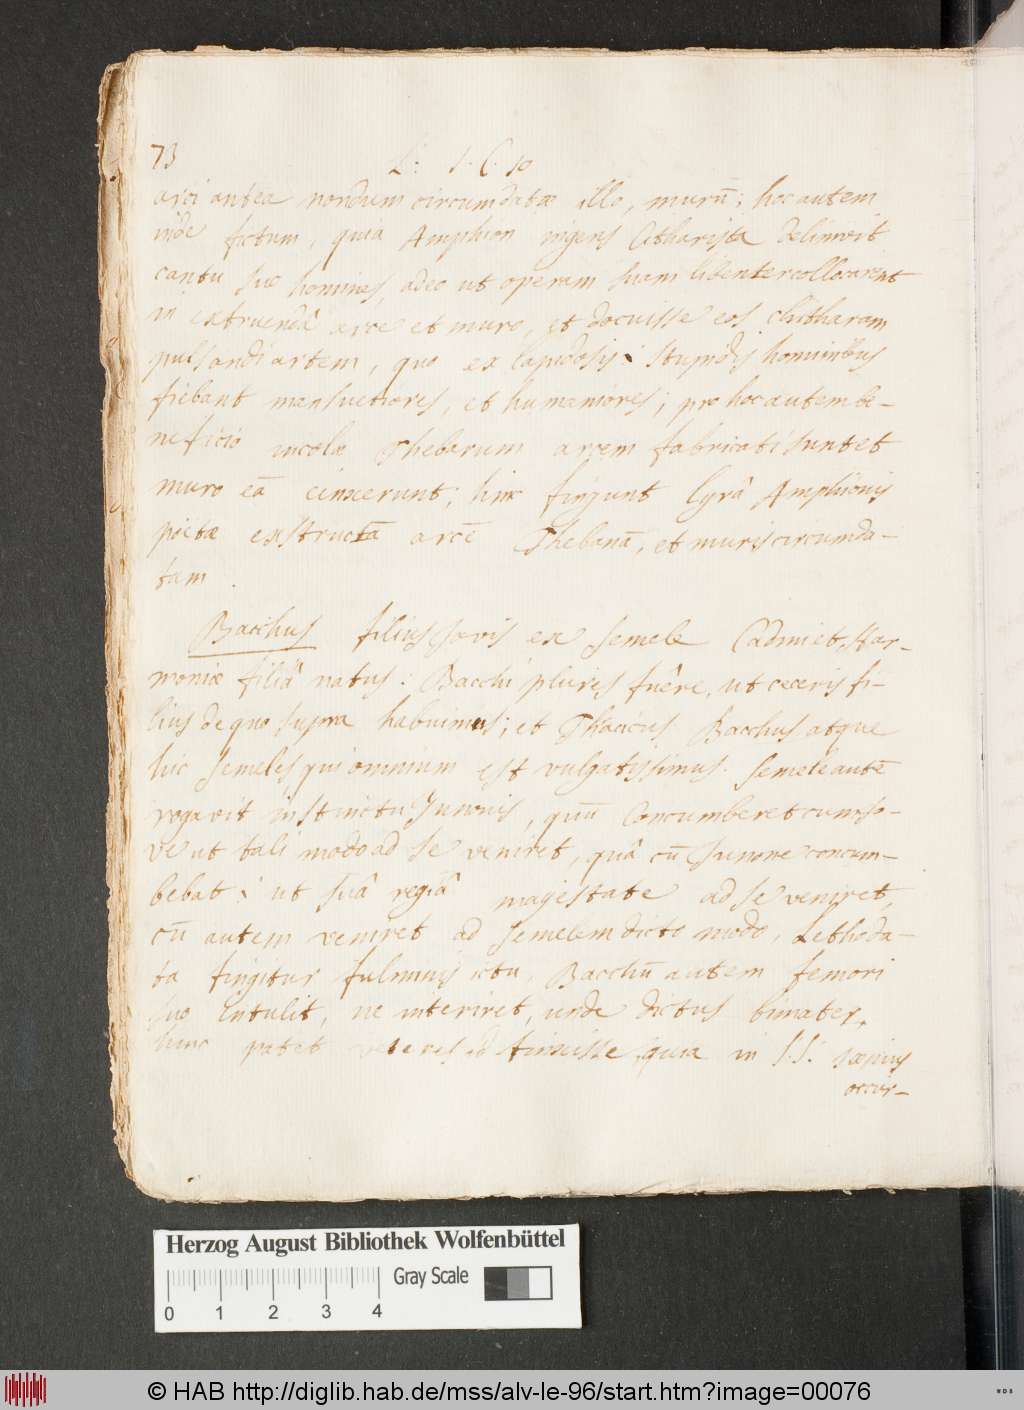 73
L: I. C. 10
arci antea nondum circumdatæ illo, murū; hoc autem
inde fictum, quia Amphion ingens Citharista delinivit
cantu suo homines, adeo ut operam suam libenter collocarent
in extruendâ arce et muro, et docuisse eos chitharam
pulsandi artem, quo ex lapidosis i stupidis hominibus
fiebant mansuetiores, et humaniores; pro hoc autem be-
neficio incolæ Thebarum arcem fabricati sunt et
muro eā cinxerunt; hinc finxunt lyrâ Amphionis
poetæ exstructā arcē Thebanā, et muris circumda-
tam.
Bacchus filius Jovis ex Semele Cadmi et Har-
moniæ filiâ natus: Bacchi plures fuêre, ut cereris fi-
lius de quo supra habuimus; et Thracius Bacchus atque
hic Semeles qui omnium est vulgatissimus. Semele autē
rogavit instinctu Junonis, quū Concumberet cum Jo-
ve ut tali modo ad se veniret, quâ cū Junone concum-
bebat i ut suâ regiâ majestate ad se veniret,
cū autem veniret ad Semelem dicto modo, Letho da-
ta fingitur fulminis ictu, Bacchū autem femori
suo intulit, ne interiret, unde dictus bimater,
hinc patet veteres id finxisse, quia in S.S. sæpius
occur-
Herzog August Bibliothek Wolfenbüttel
0 1 2 3 4
Gray Scale
© HAB http://diglib.hab.de/mss/alv-le-96/start.htm?image=00076